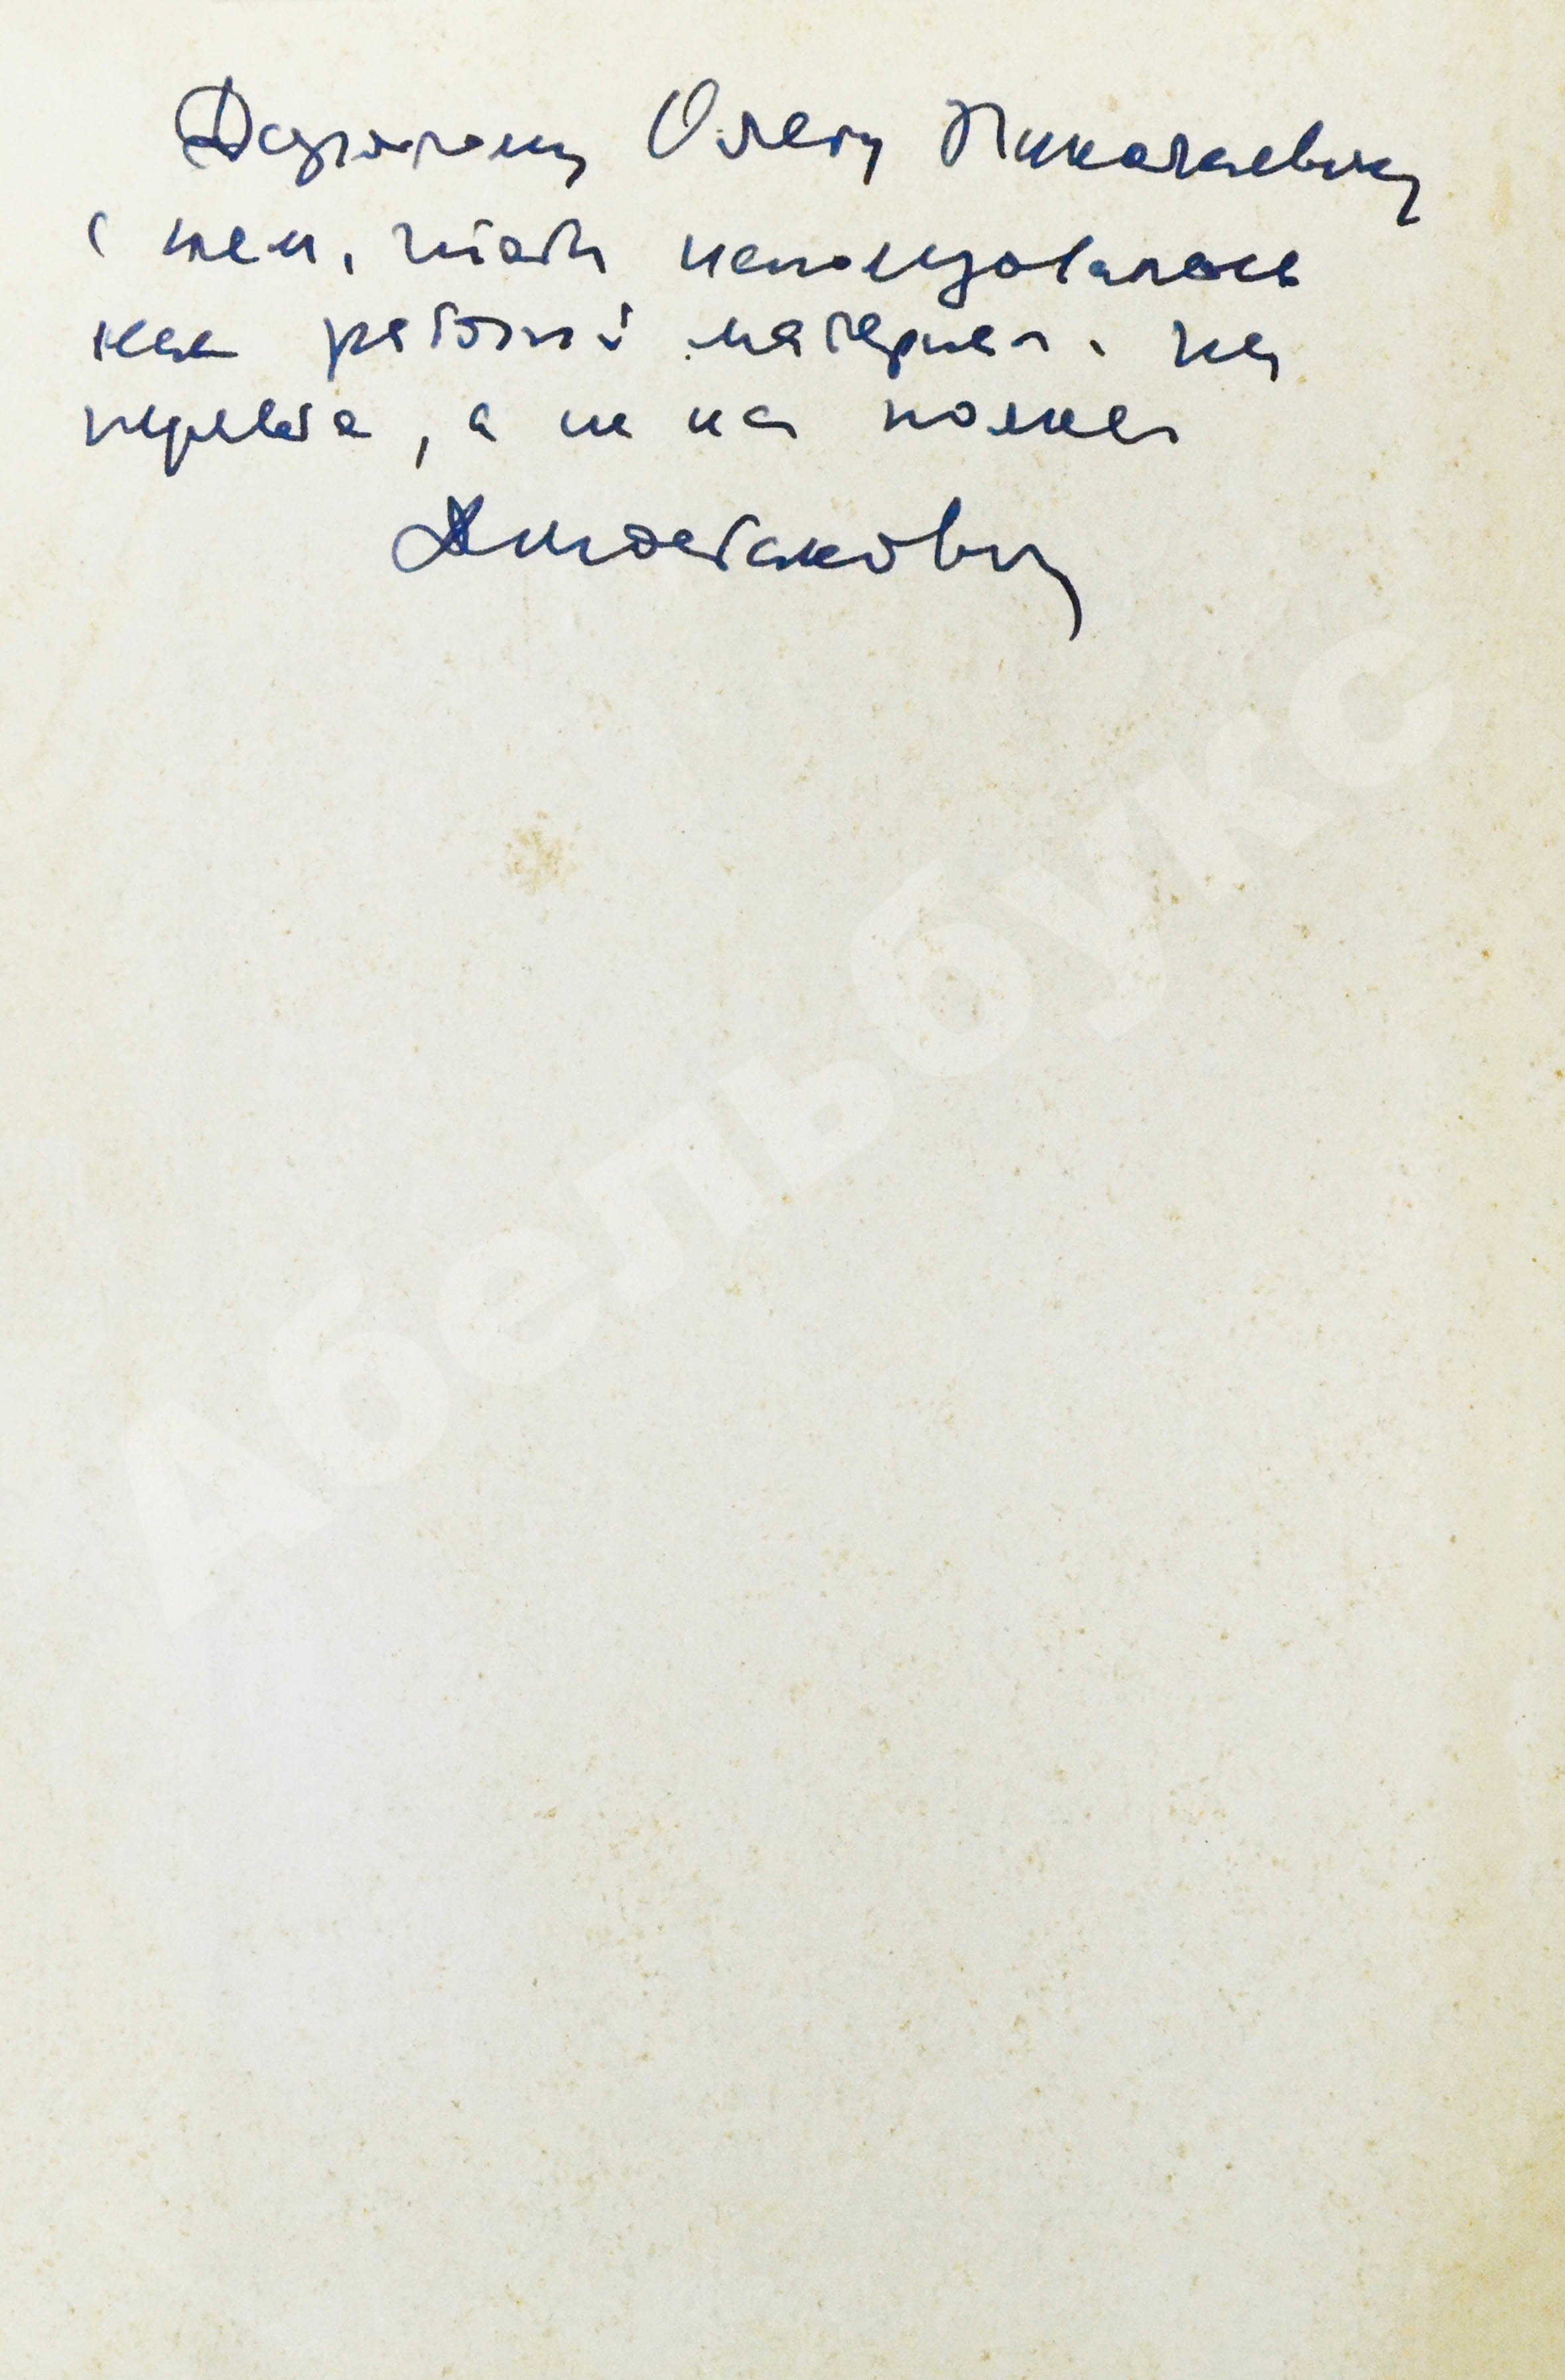 Дорогому Олегу Николаевичу
с тем, чтобы использовалось
как рабочий материал. на
, а не на полках
Абельбукс